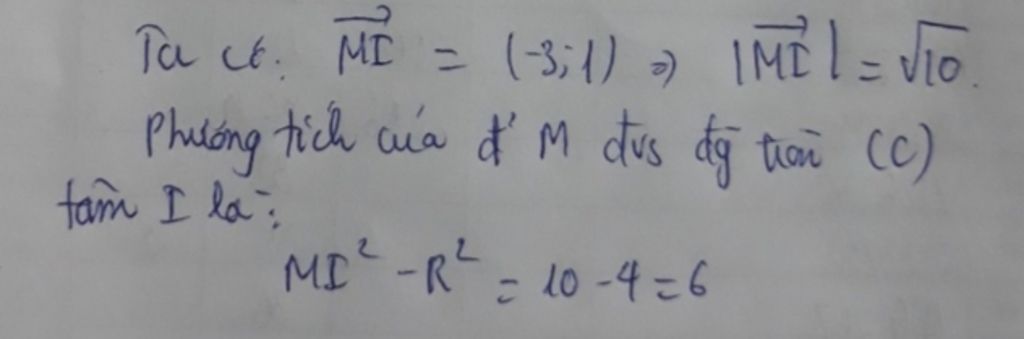 Ta có: \overrightarrow{MI} = (-3;1) ⇒ |\overrightarrow{MI}| = √10.
Phương tích của đ' M đvs đg̃ tròn (C)
tâm I là:
MI² - R² = 10 - 4 = 6